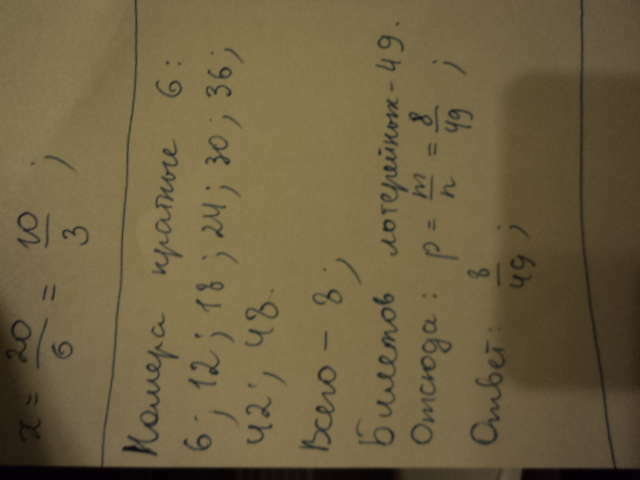 x = 20/6 = 10/3 ;
Номера кратные 6:
6; 12; 18; 24; 30; 36;
42; 48.
Всего - 8;
Билетов лотерейных - 49.
Отсюда: p = m/n = 8/49 ;
Ответ: 8/49 ;